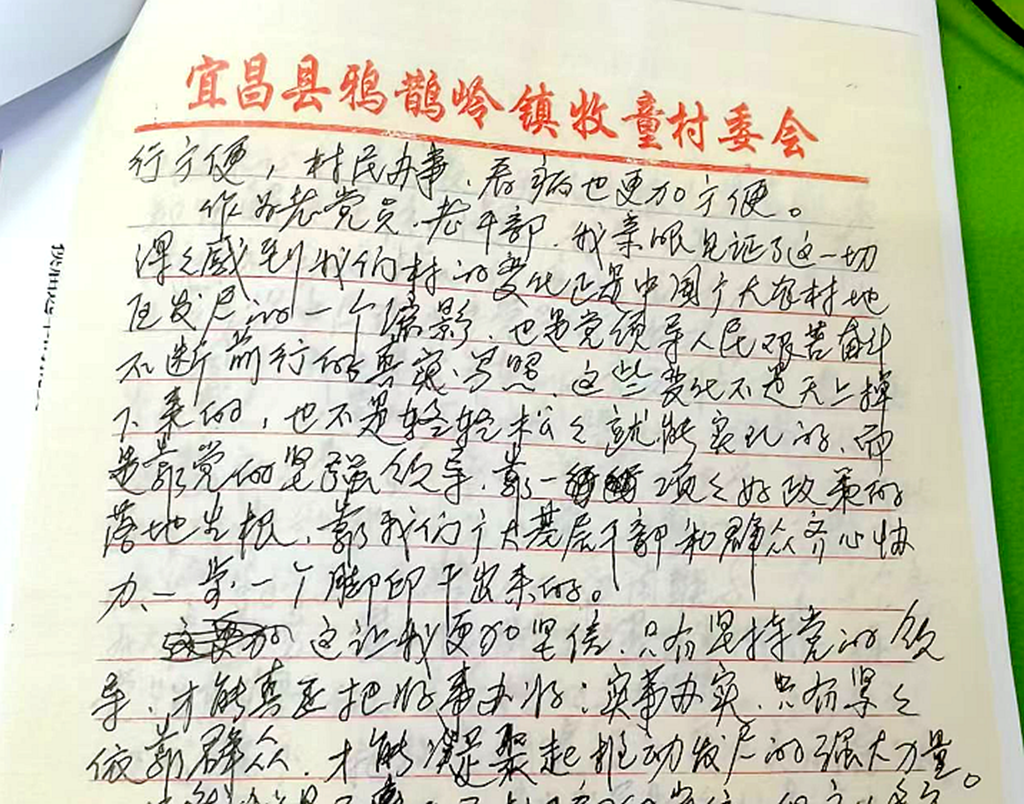 宜昌县鸦鹊岭镇牧童村委会
行方便，村民办事、看病也更加方便。
作为老党员、老干部，我亲眼见证了这一切
深深感到我们村的变化正是中国广大农村地
区发展的一个缩影，也是党领导人民艰苦奋斗
不断前行的真实写照，这些变化不是天上掉
下来的，也不是轻轻松松就能实现的，而
是靠党的坚强领导，靠一项项好政策的
落地生根，靠我们广大基层干部和群众齐心协
力、一步一个脚印干出来的。
这让我更加坚信，只有坚持党的领
导，才能真正把好事办好；实事办实，只有紧紧
依靠群众，才能凝聚起推动发展的强大力量。